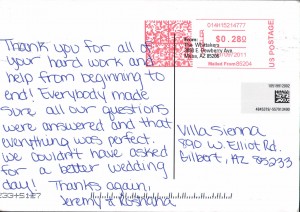 Thank you for all of
your hard work and
help from beginning to
end! Everybody made
sure all our questions
were answered and that
everything was perfect.
We couldn't have asked
for a better wedding
day! Thanks again,
Jeremy &
$0.28
US POSTAGE
Mailed From 85204
From:
The Whittakers
Dewberry Ave
Mesa, AZ 85206
Villa Sienna
890 W. Elliot Rd.
Gilbert, AZ 85233